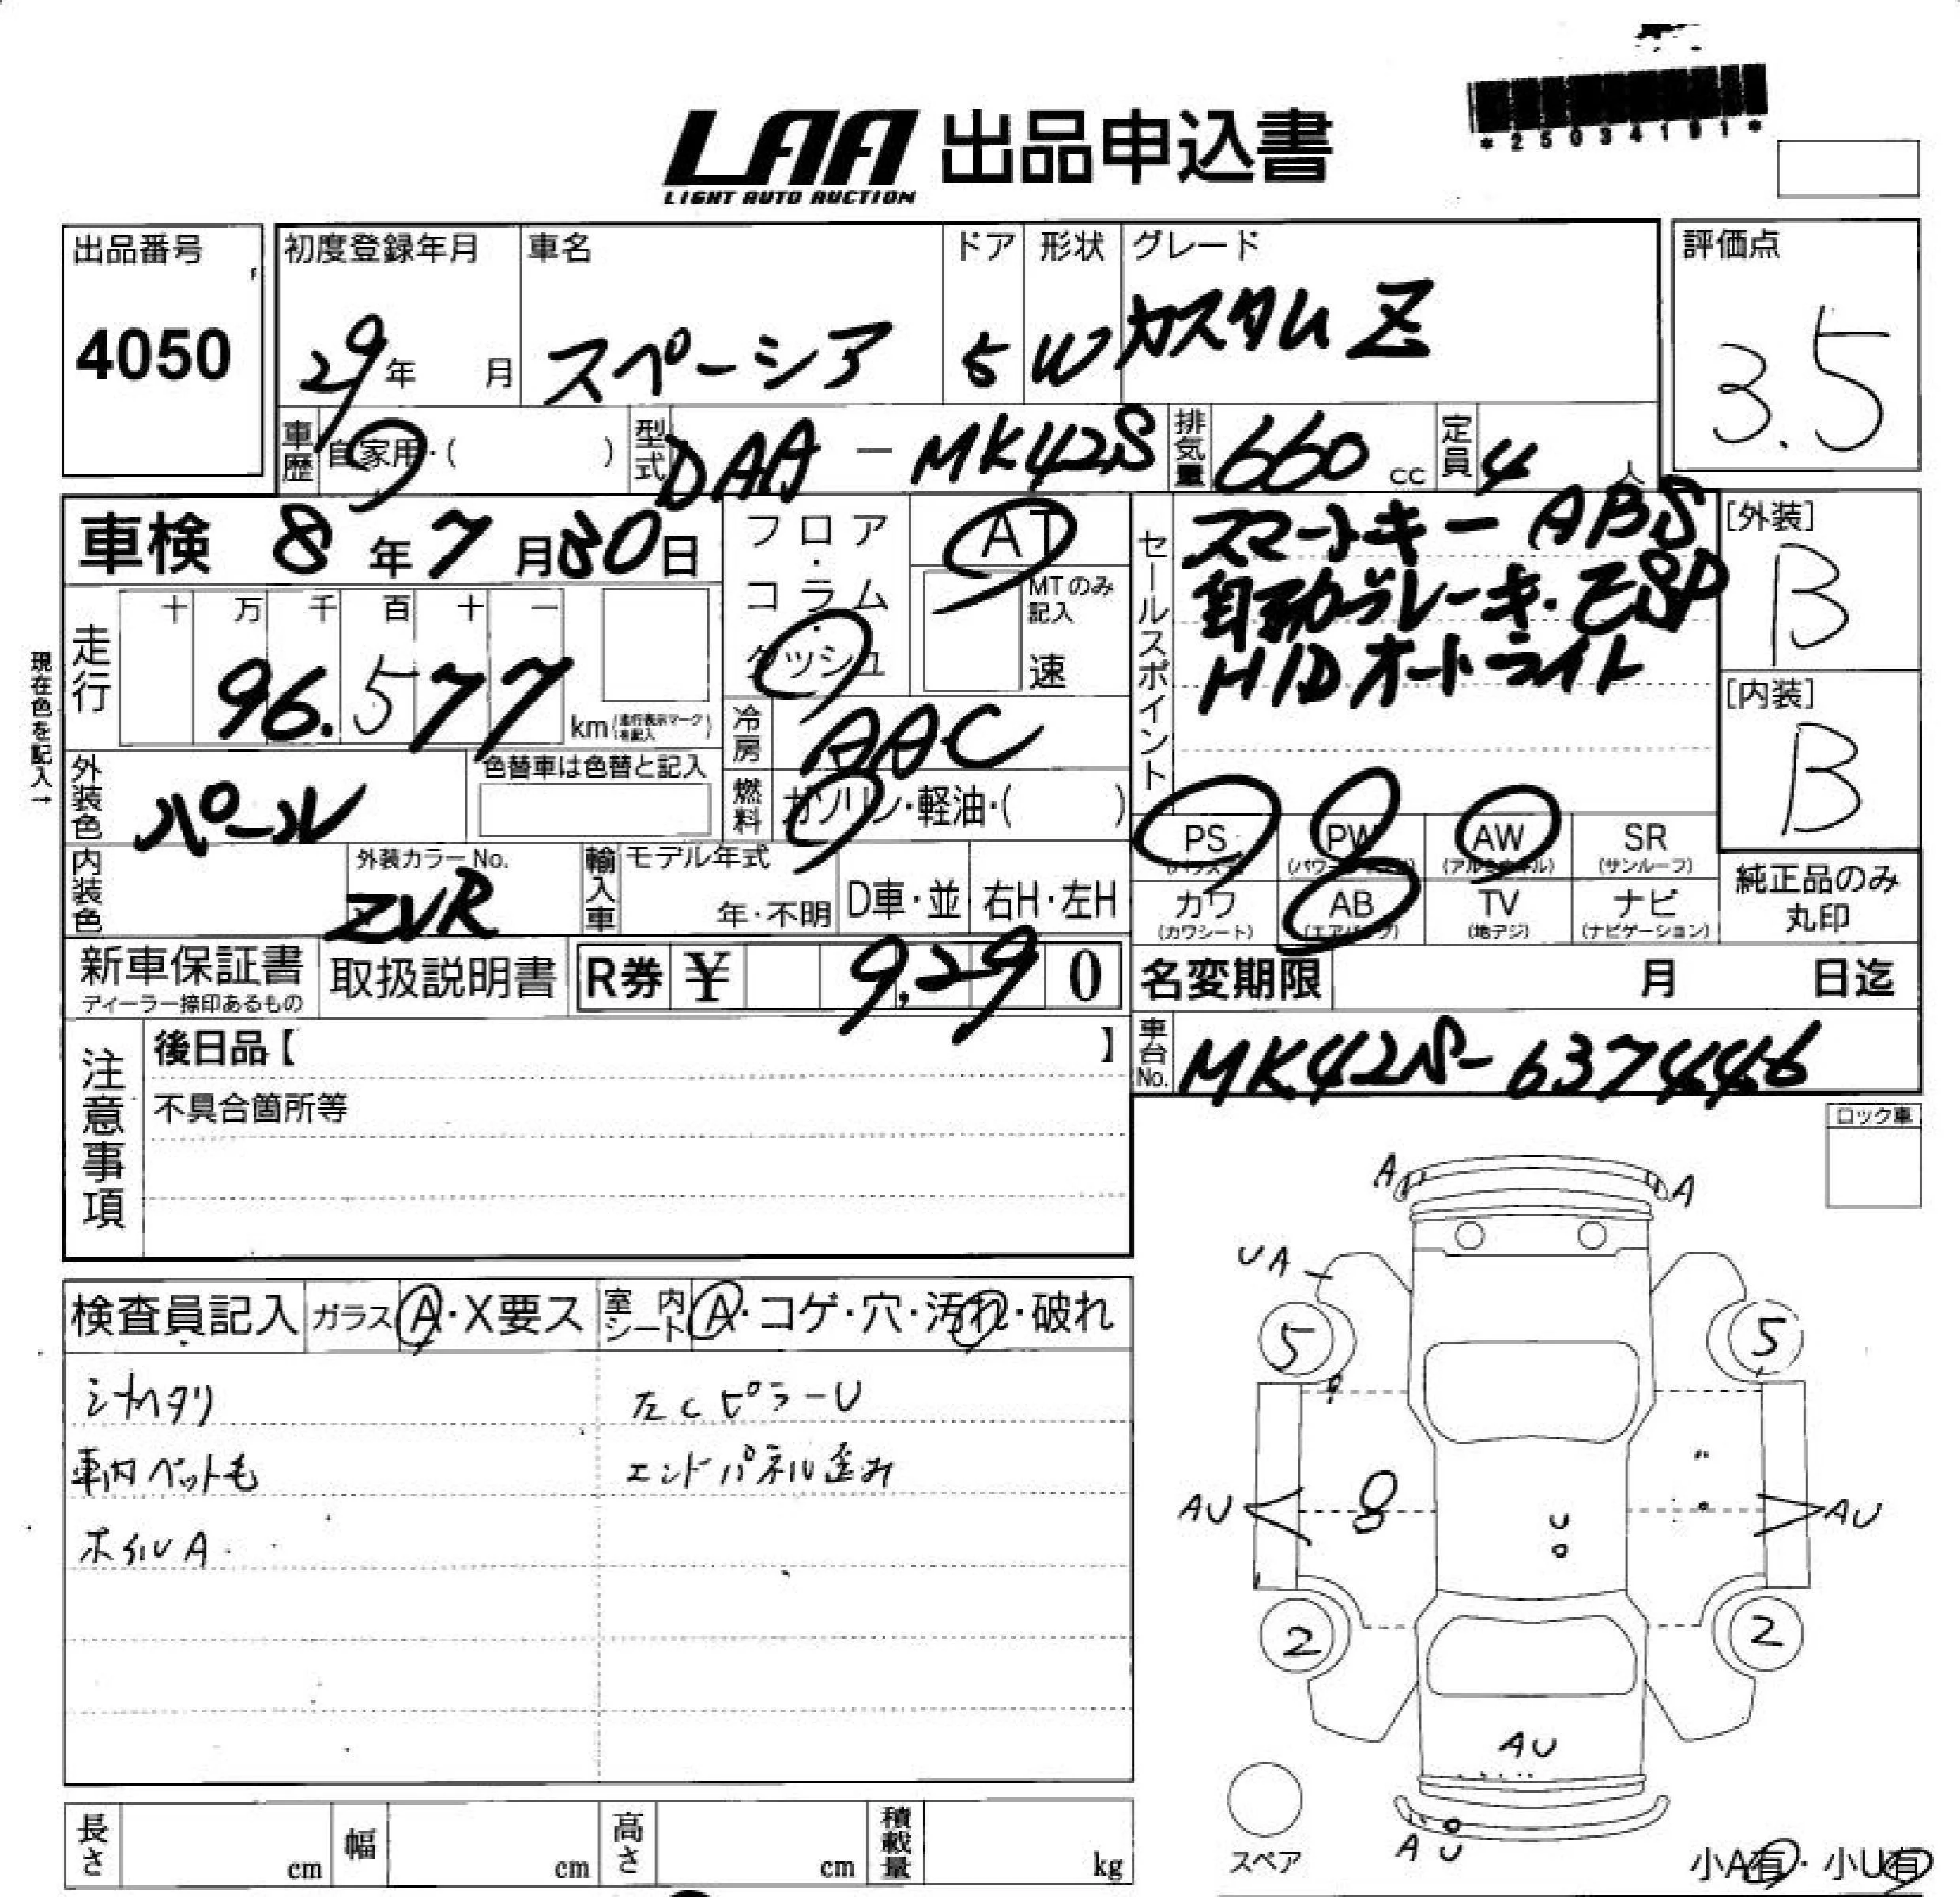 *25034191*
LAA 出品申込書
LIGHT AUTO AUCTION
出品番号
4050
初度登録年月
29年 月
車名
スペーシア
ドア
5
形状
W
グレード
カスタムZ
評価点
3.5
車歴 自家用・( )
型式 DAA-MK42S
排気量 660 cc
定員 4 人
車検 8年7月30日
フロア・コラム・ダッシュ
AT
MTのみ記入
速
セールスポイント
スマートキー ABS
自動ブレーキ・ESP
HIDオートライト
[外装]
B
[内装]
B
現在色を記入→
走行
十 万 千 百 十 一
96.577
km(走行表示マークを記入)
冷房 AAC
燃料 ガソリン・軽油・( )
外装色 パール
色替車は色替と記入
内装色
外装カラーNo.
ZVR
輸入車
モデル年式
年・不明
D車・並
右H・左H
PS (パワステ)
PW (パワーウィンドウ)
AW (アルミホイル)
SR (サンルーフ)
カワ (カワシート)
AB (エアバッグ)
TV (地デジ)
ナビ (ナビゲーション)
純正品のみ
丸印
新車保証書
ディーラー捺印あるもの
取扱説明書
R券 ¥ 9,290
名変期限 月 日迄
車台No. MK42S-637446
注意事項
後日品【 】
不具合箇所等
ロック車
検査員記入
ガラス A・X要ス
室内シート A・コゲ・穴・汚れ・破れ
シガータリ
車内ペット毛
ホイルA
左Cピラー U
エンドパネル歪み
A
A
UA
5
5
AU
AU
U
2
2
AU
AU
スペア
小A有・小U有
長さ cm
幅 cm
高さ cm
積載量 kg